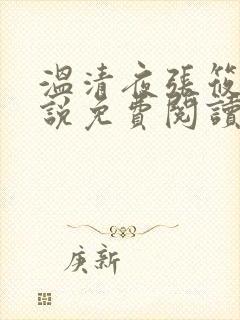 溫清夜張筱
說免費閱讀
庚新